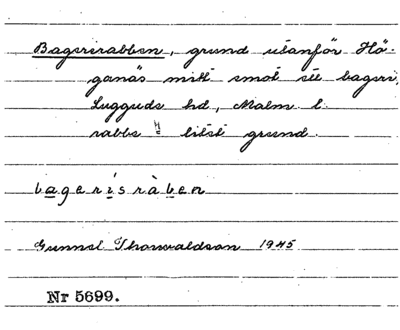 Bagerirabben, grund utanför Hö-
ganäs mitt emot ett bageri,
Luggude hd, Malm. l.
rabbe = litet grund.
bagerisràben
Gunnel Thorwaldson 1945
Nr 5699.